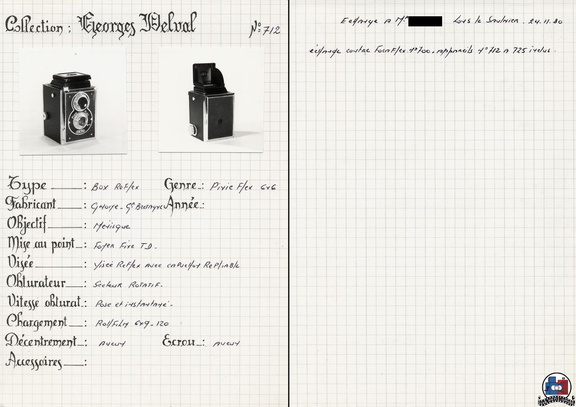 Collection : Georges Delval Nº 712
Type : Box Reflex Genre : Pixie Flex 6x6
Fabricant : Année :
Objectif : Ménisque
Mise au point : Foyer Fixe T.D.
Visée : Visée Reflex avec capuchon Repliable
Obturateur : Secteur Rotatif.
Vitesse obturat : Pose et instantané.
Chargement : Rollfilm 6x9 - 120
Décentrement : aucun Ecrou : aucun
Accessoires :
Echange a Mr Lons le Saulnier . 24.11.80
échange contre Nº 700. Appareils Nº 712 a 725 inclus.